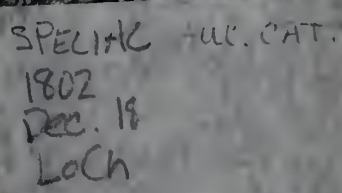 SPECIAL AUC. CAT.
1802
Dec. 18
LoCh